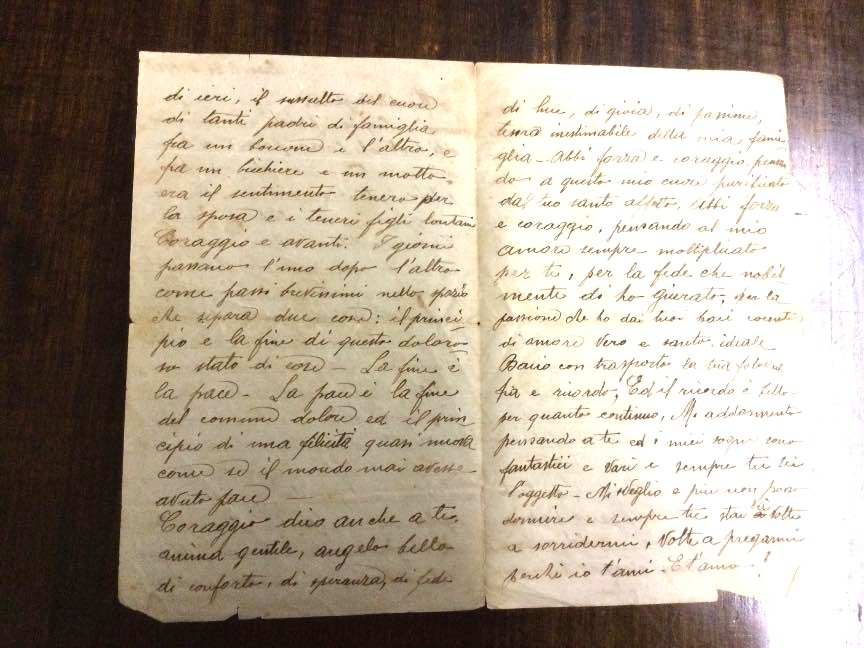 di ieri, il sussulto del cuore
di tanti padri di famiglia
fra un boccone e l'altro, e
fra un bicchiere e un motto
era il sentimento tenero per
la sposa e i teneri figli lontani
Coraggio e avanti. I giorni
passano l'uno dopo l'altro
come passi brevissimi nello spazio
che separa due cose: il princi-
pio e la fine di questo doloro-
so stato di cose - La fine è
la pace - La pace è la fine
del comune dolore ed il prin
cipio di una felicità quasi nuova
come se il mondo mai avesse
avuto pace —
Coraggio dico anche a te,
anima gentile, angelo bello
di conforto, di speranza, di fede
di luce, di gioia, di passione,
inestimabile della mia fami
glia - Abbi forza e coraggio, pensan
do a questo mio cuore purificato
dal tuo santo affetto, abbi forza
e coraggio, pensando al mio
amore sempre moltiplicato
per te, per la fede che nobil
mente di ho giurato, per la
passione che ho dai tuoi baci
di amore vero e santo, ideale
Bacio con trasporto la tua
fia e ricordo, Ed il ricordo è bello
per quanto continuo, Mi addormento
pensando a te ed i miei sogni sono
fantastici e vari e sempre tu sei
l'oggetto - Mi sveglio e più non posso
dormire e sempre tu stai volte
a sorridermi, volte a pregarmi
perchè io t'ami - E t'amo!